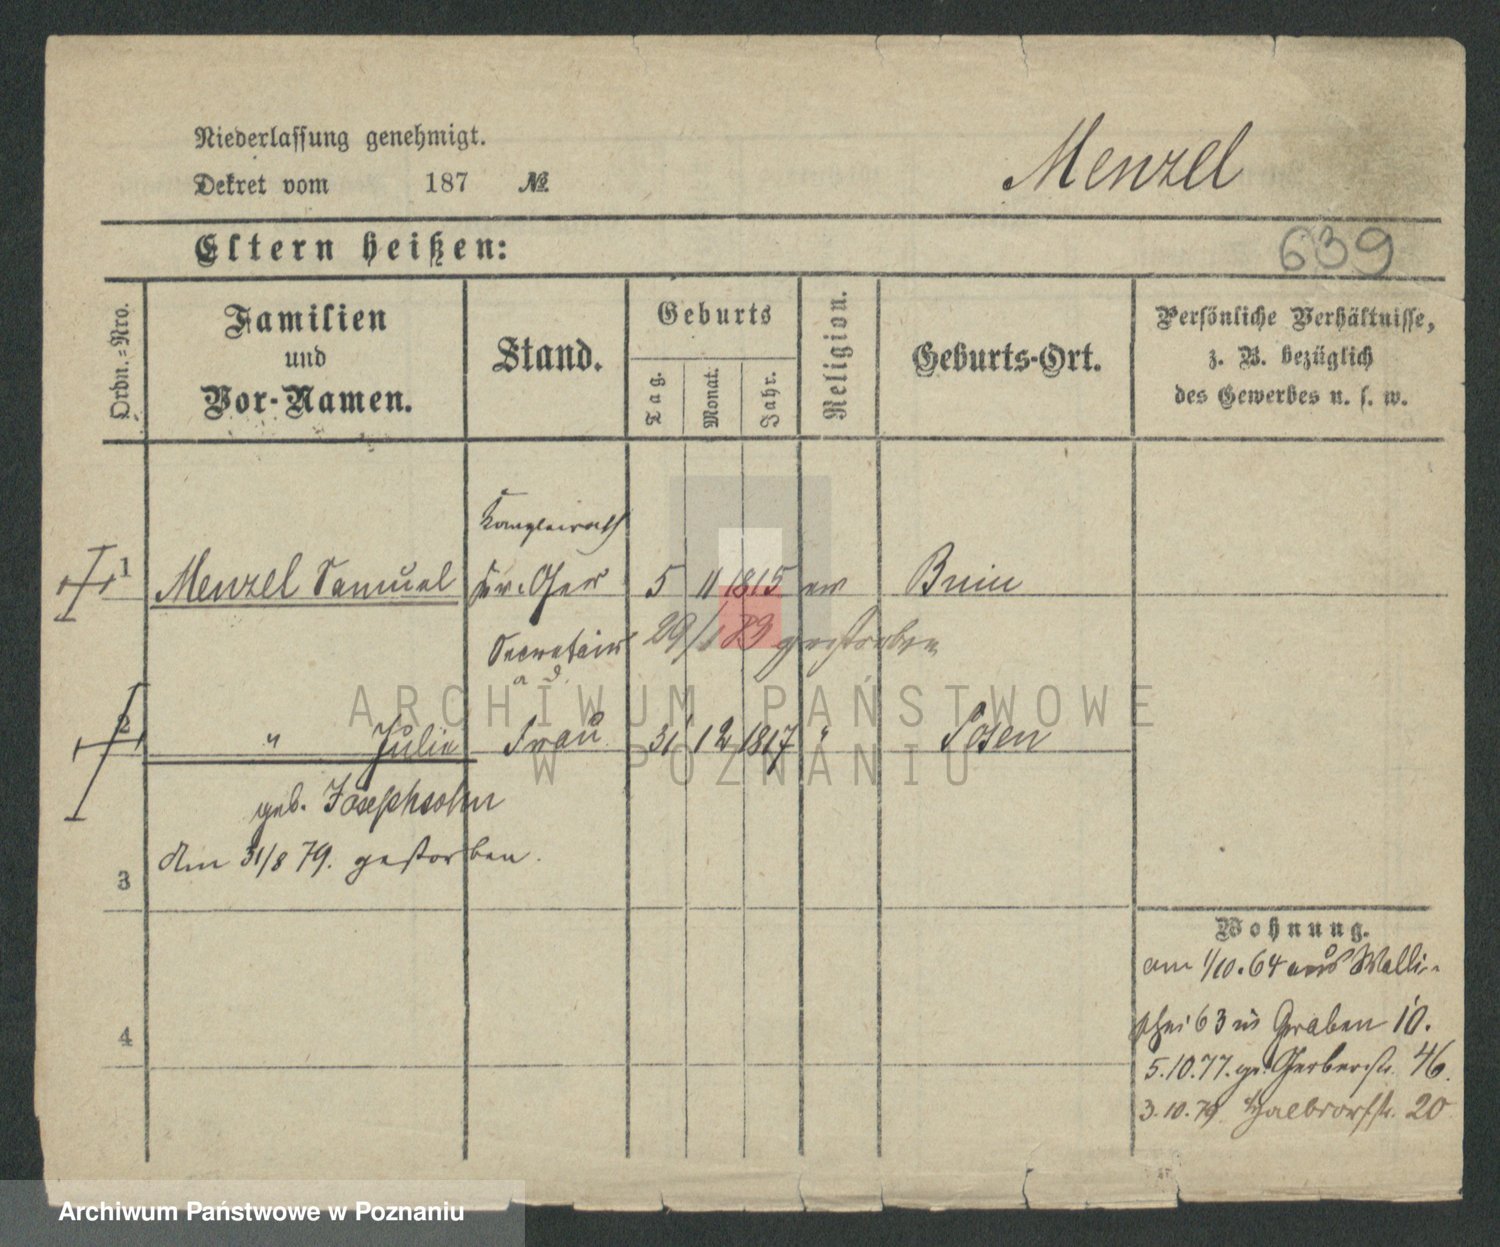 Niederlassung genehmigt.
Dekret vom 187 №
Menzel
Eltern heißen:
639
Ordn.=Nro.
Familien
und
Vor-Namen.
Stand.
Geburts
Tag.
Monat.
Jahr.
Religion.
Geburts-Ort.
Persönliche Verhältnisse,
z. B. bezüglich
des Gewerbes u. s. w.
Kanzleirath
1 Menzel Samuel 5 11 1815 ev Bnin
Secretair 29/1 83 gestorben
a. D.
2 " Julie Frau 31 12 1817 " Posen
geb. Josephsohn
den 31/8 79. gestorben.
3
Wohnung.
am 1/10.64 aus Walli-
schei 63 in Graben 10.
4
5.10.77. Gerberstr. 46.
3.10.79 Halbdorfstr. 20
ARCHIWUM PAŃSTWOWE
W POZNANIU
Archiwum Państwowe w Poznaniu